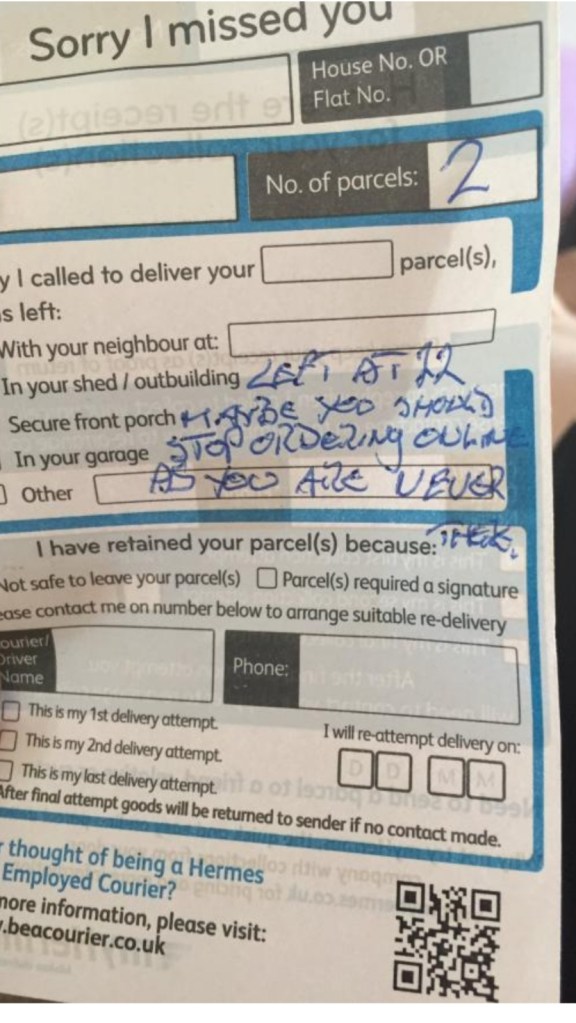 Sorry I missed you
House No. OR
Flat No.
No. of parcels: 2
y I called to deliver your parcel(s),
s left:
With your neighbour at:
In your shed / outbuilding LEFT AT 22
Secure front porch MAYBE YOU SHOULD
In your garage STOP ORDERING ONLINE
Other AS YOU ARE NEVER
I have retained your parcel(s) because:
Not safe to leave your parcel(s) Parcel(s) required a signature
ease contact me on number below to arrange suitable re-delivery
ourier/
Driver
Name
Phone:
This is my 1st delivery attempt.
This is my 2nd delivery attempt.
This is my last delivery attempt.
I will re-attempt delivery on:
D D M M
After final attempt goods will be returned to sender if no contact made.
r thought of being a Hermes
Employed Courier?
more information, please visit:
.beacourier.co.uk